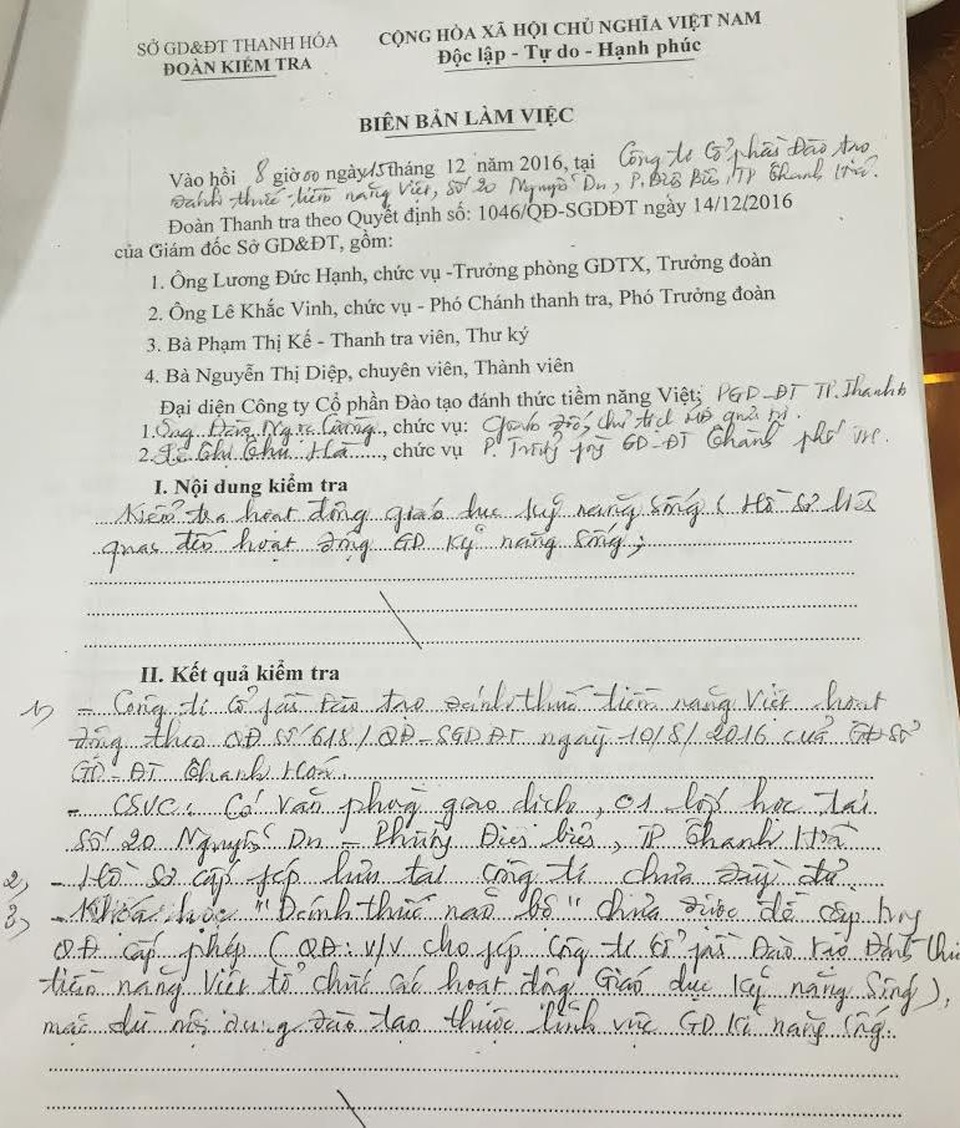 SỞ GD&ĐT THANH HÓA
ĐOÀN KIỂM TRA
CỘNG HÒA XÃ HỘI CHỦ NGHĨA VIỆT NAM
Độc lập - Tự do - Hạnh phúc
BIÊN BẢN LÀM VIỆC
Vào hồi 8 giờ 00 ngày 15 tháng 12 năm 2016, tại Công ty Cổ phần Đào tạo
đánh thức tiềm năng Việt, số 20 Nguyễn Du, P. Điện Biên, TP Thanh Hóa.
Đoàn Thanh tra theo Quyết định số: 1046/QĐ-SGDĐT ngày 14/12/2016
của Giám đốc Sở GD&ĐT, gồm:
1. Ông Lương Đức Hạnh, chức vụ -Trưởng phòng GDTX, Trưởng đoàn
2. Ông Lê Khắc Vinh, chức vụ - Phó Chánh thanh tra, Phó Trưởng đoàn
3. Bà Phạm Thị Kế - Thanh tra viên, Thư ký
4. Bà Nguyễn Thị Diệp, chuyên viên, Thành viên
Đại diện Công ty Cổ phần Đào tạo đánh thức tiềm năng Việt; PGD-ĐT TP. Thanh
1. Ông, chức vụ: Giám đốc, chủ tịch quản trị.
2. Lê Thị Thu Hà, chức vụ P. Trưởng GD-ĐT Thành phố
I. Nội dung kiểm tra
Kiểm tra hoạt động giáo dục kỹ năng sống; Hồ sơ liên
quan đến hoạt động GD kỹ năng sống;
II. Kết quả kiểm tra
1, - Công ti Cổ phần Đào tạo đánh thức tiềm năng Việt hoạt
động theo QĐ số 618/QĐ-SGDĐT ngày 10/8/2016 của Sở
GD-ĐT Thanh Hoá.
- CSVC: Có văn phòng giao dịch, 01 lớp học tại
số 20 Nguyễn Du - Phường Điện Biên, TP Thanh Hoá
2, - Hồ sơ cấp phép lưu tại Công ti chưa đầy đủ.
3, - Khoá học "Đánh thức não bộ" chưa được đề cập trong
QĐ cấp phép (QĐ: V/v cho phép Công ti Cổ phần Đào tạo Đánh thức
tiềm năng Việt tổ chức các hoạt động Giáo dục Kỹ năng Sống),
mặc dù nội dung đào tạo thuộc lĩnh vực GD Kĩ năng sống.